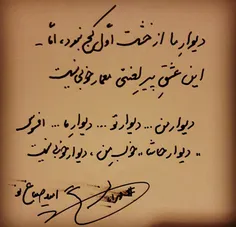 دیوارِ ما از خشتِ اوّل کج نبود، امّا ..
این عشقِ پیرِ لعنتی معمارِ خوبی نیست
دیوارِ من ... دیوارِ تو ... دیوارِ ما ... افسوس
دیوارِ حاشا، خوبِ من، دیوارِ خوبی نیست
امید صباغ نو